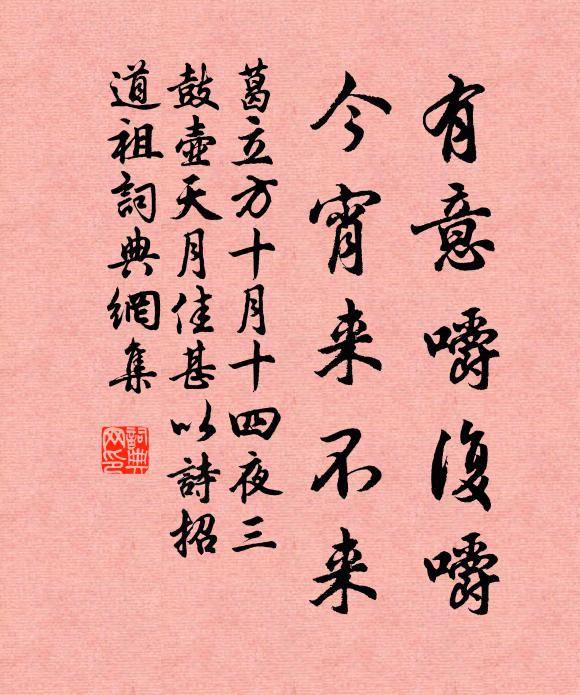 有意嚼復嚼
今宵来不来
葛立方十月十四夜三
鼓壺天月佳甚以詩招
道祖詞典網集
詞典网印